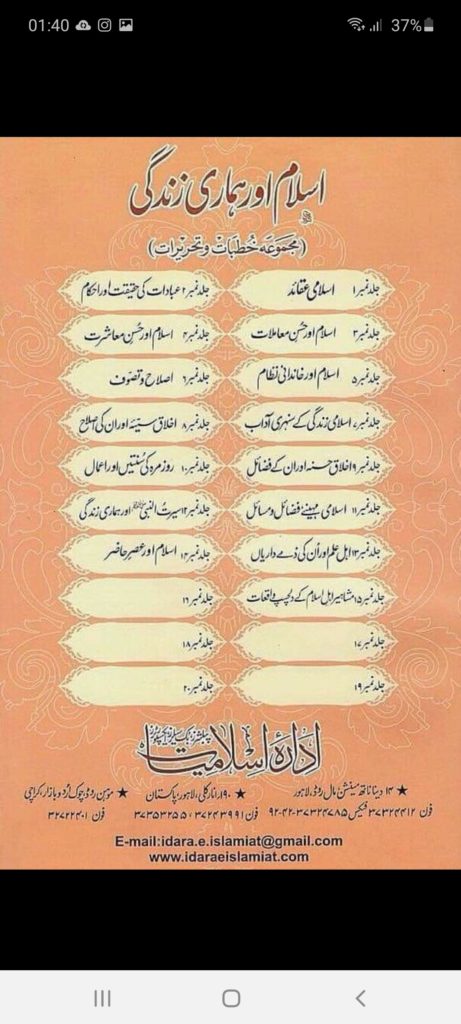 01:40
37%
اسلام اور ہماری زندگی
(مجموعہ خطبات و تحریرات)
جلد نمبر ۱ اسلامی عقائد
جلد نمبر ۲ عبادات کی حقیقت اور احکام
جلد نمبر ۳ اسلام اور حسن معاملات
جلد نمبر ۴ اسلام اور حسن معاشرت
جلد نمبر ۵ اسلام اور خاندانی نظام
جلد نمبر ۶ اصلاح و تصوف
جلد نمبر ۷ اسلامی زندگی کے سنہری آداب
جلد نمبر ۸ اخلاق سیئہ اور ان کی اصلاح
جلد نمبر ۹ اخلاق حسنہ اور ان کے فضائل
جلد نمبر ۱۰ روزمرہ کی سنتیں اور اعمال
جلد نمبر ۱۱ اسلامی مہینے فضائل و مسائل
جلد نمبر ۱۲ سیرت النبی ﷺ اور ہماری زندگی
جلد نمبر ۱۳ اہل علم اور ان کی ذمے داریاں
جلد نمبر ۱۴ اسلام اور عصر حاضر
جلد نمبر ۱۵ مشاہیر اہل اسلام کے دلچسپ واقعات
جلد نمبر ۱۶
جلد نمبر ۱۷
جلد نمبر ۱۸
جلد نمبر ۱۹
جلد نمبر ۲۰
ادارۂ اسلامیات
★ ۱۴ دینا ناتھ مینشن مال روڈ، لاہور
فون ۳۷۳۲۴۴۱۲ فیکس ۳۷۳۲۴۷۸۵-۴۲-۹۲
★ ۱۹۰ انارکلی، لاہور، پاکستان
فون ۳۷۲۴۳۹۹۱، ۳۷۳۵۳۲۵۵
★ موہن روڈ، چوک اردو بازار، کراچی
فون ۳۲۷۲۲۴۰۱
E-mail:idara.e.islamiat@gmail.com
www.idaraeislamiat.com